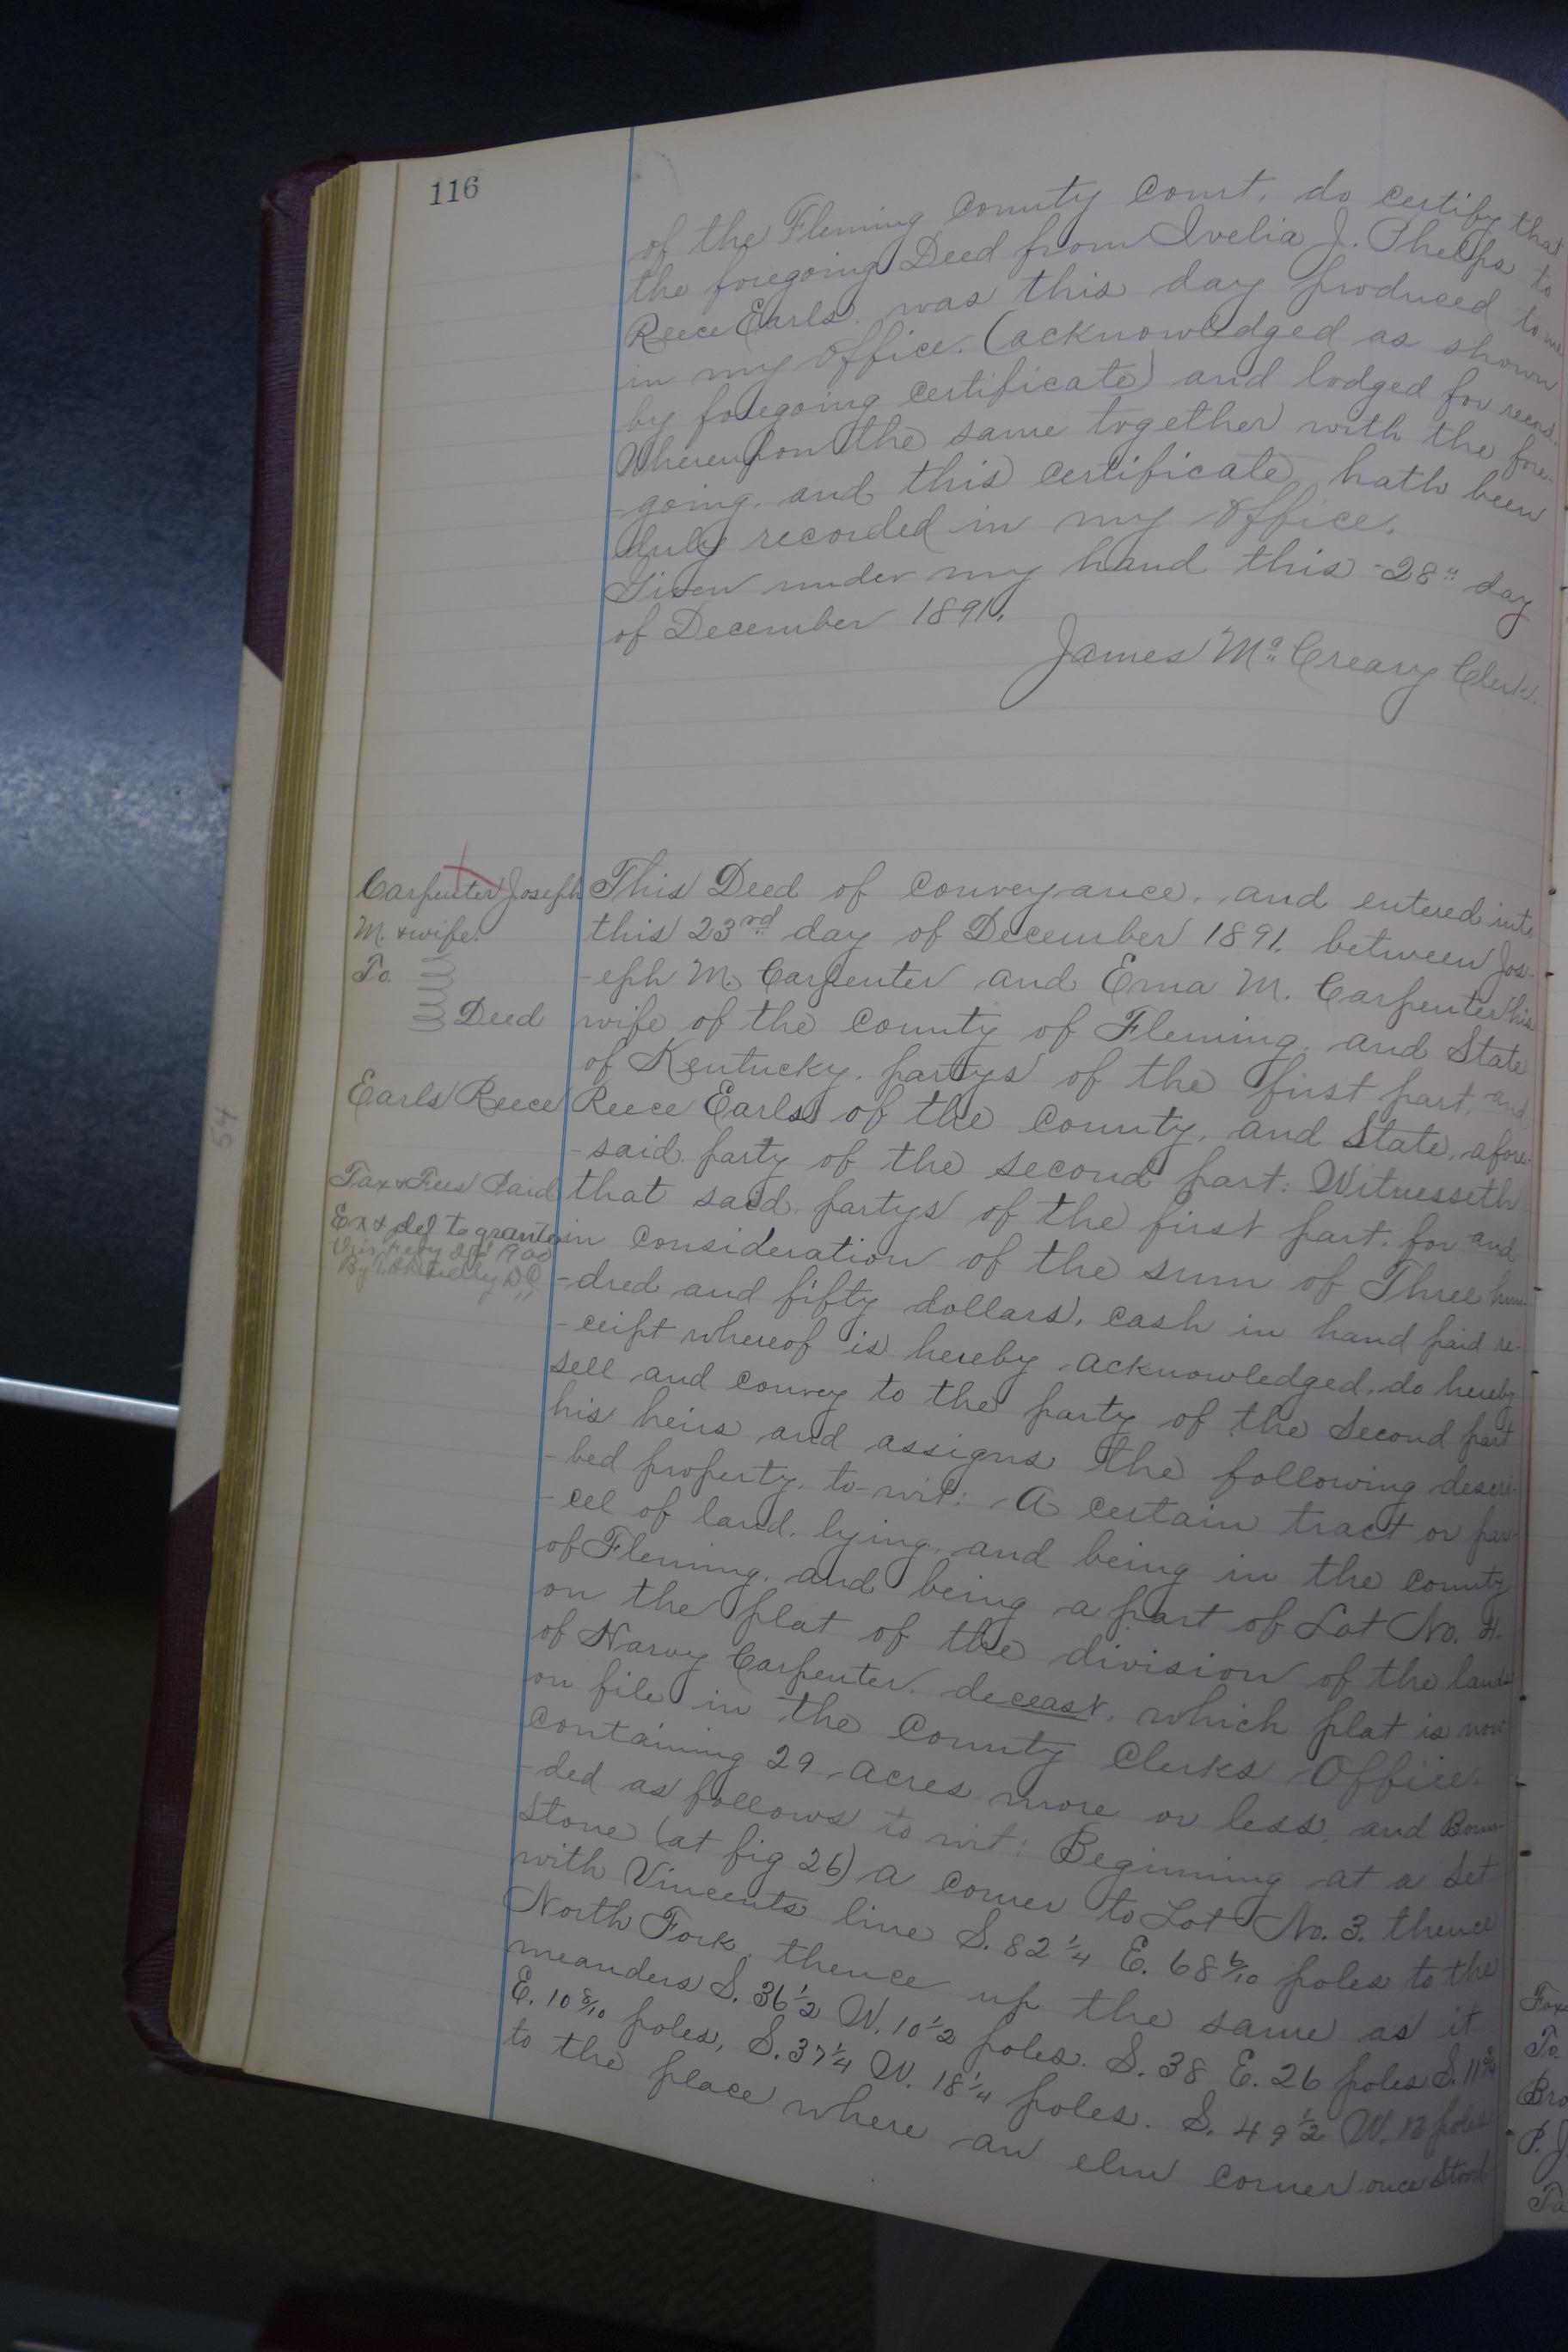 116
of the Fleming County Court, do certify that
the foregoing Deed from Ivelia J. Phelps to
Reece Earls. was this day produced to me
in my office. (acknowledged as shown
by foregoing certificate) and lodged for record.
Whereupon the same together with the fore-
-going. and this certificate hath been
duly recorded in my office.
Given under my hand this 28" day
of December 1891.
James Mc Creary Clerk.
Carpenter Joseph
M. & wife.
To.
Deed
Earls Reece
Tax & Fees Paid
Ex & del to grantee
By D.C.
54
This Deed of conveyance, and entered into
this 23rd day of December 1891. between Jos-
-eph M. Carpenter and Ema M. Carpenter his
wife of the County of Fleming. and State
of Kentucky. partys of the first part, and
Reece Earls of the County, and State, afore-
-said. party of the second part: Witnesseth
that said partys of the first part. for and
in consideration of the sum of Three hun-
-dred and fifty dollars, cash in hand paid re-
-ceipt whereof is hereby acknowledged, do hereby
sell and convey to the party of the Second part
his heirs and assigns the following descri-
-bed property, to-wit: A certain tract or par-
-cel of land, lying, and being in the County
of Fleming, and being a part of Lot No. 4.
on the plat of the division of the lands
of Harvy Carpenter. deceast, which plat is now
on file in the County Clerks Office.
Containing 29 acres more or less, and Boun-
-ded as follows to wit: Beginning at a Set
Stone (at fig 26) a corner to Lot No. 3. thence
with Vincents line S. 82 1/4 E. 68 6/10 poles to the
North Fork, thence up the same as it
meanders S. 36 1/2 W. 10 1/2 poles. S. 38 E. 26 poles S. 11
E. 10 8/10 poles, S. 37 1/4 W. 18 1/4 poles. S. 49 1/2 W. 13 poles
to the place where an elm corner once Stood
To.
Bro
P. J
Ta